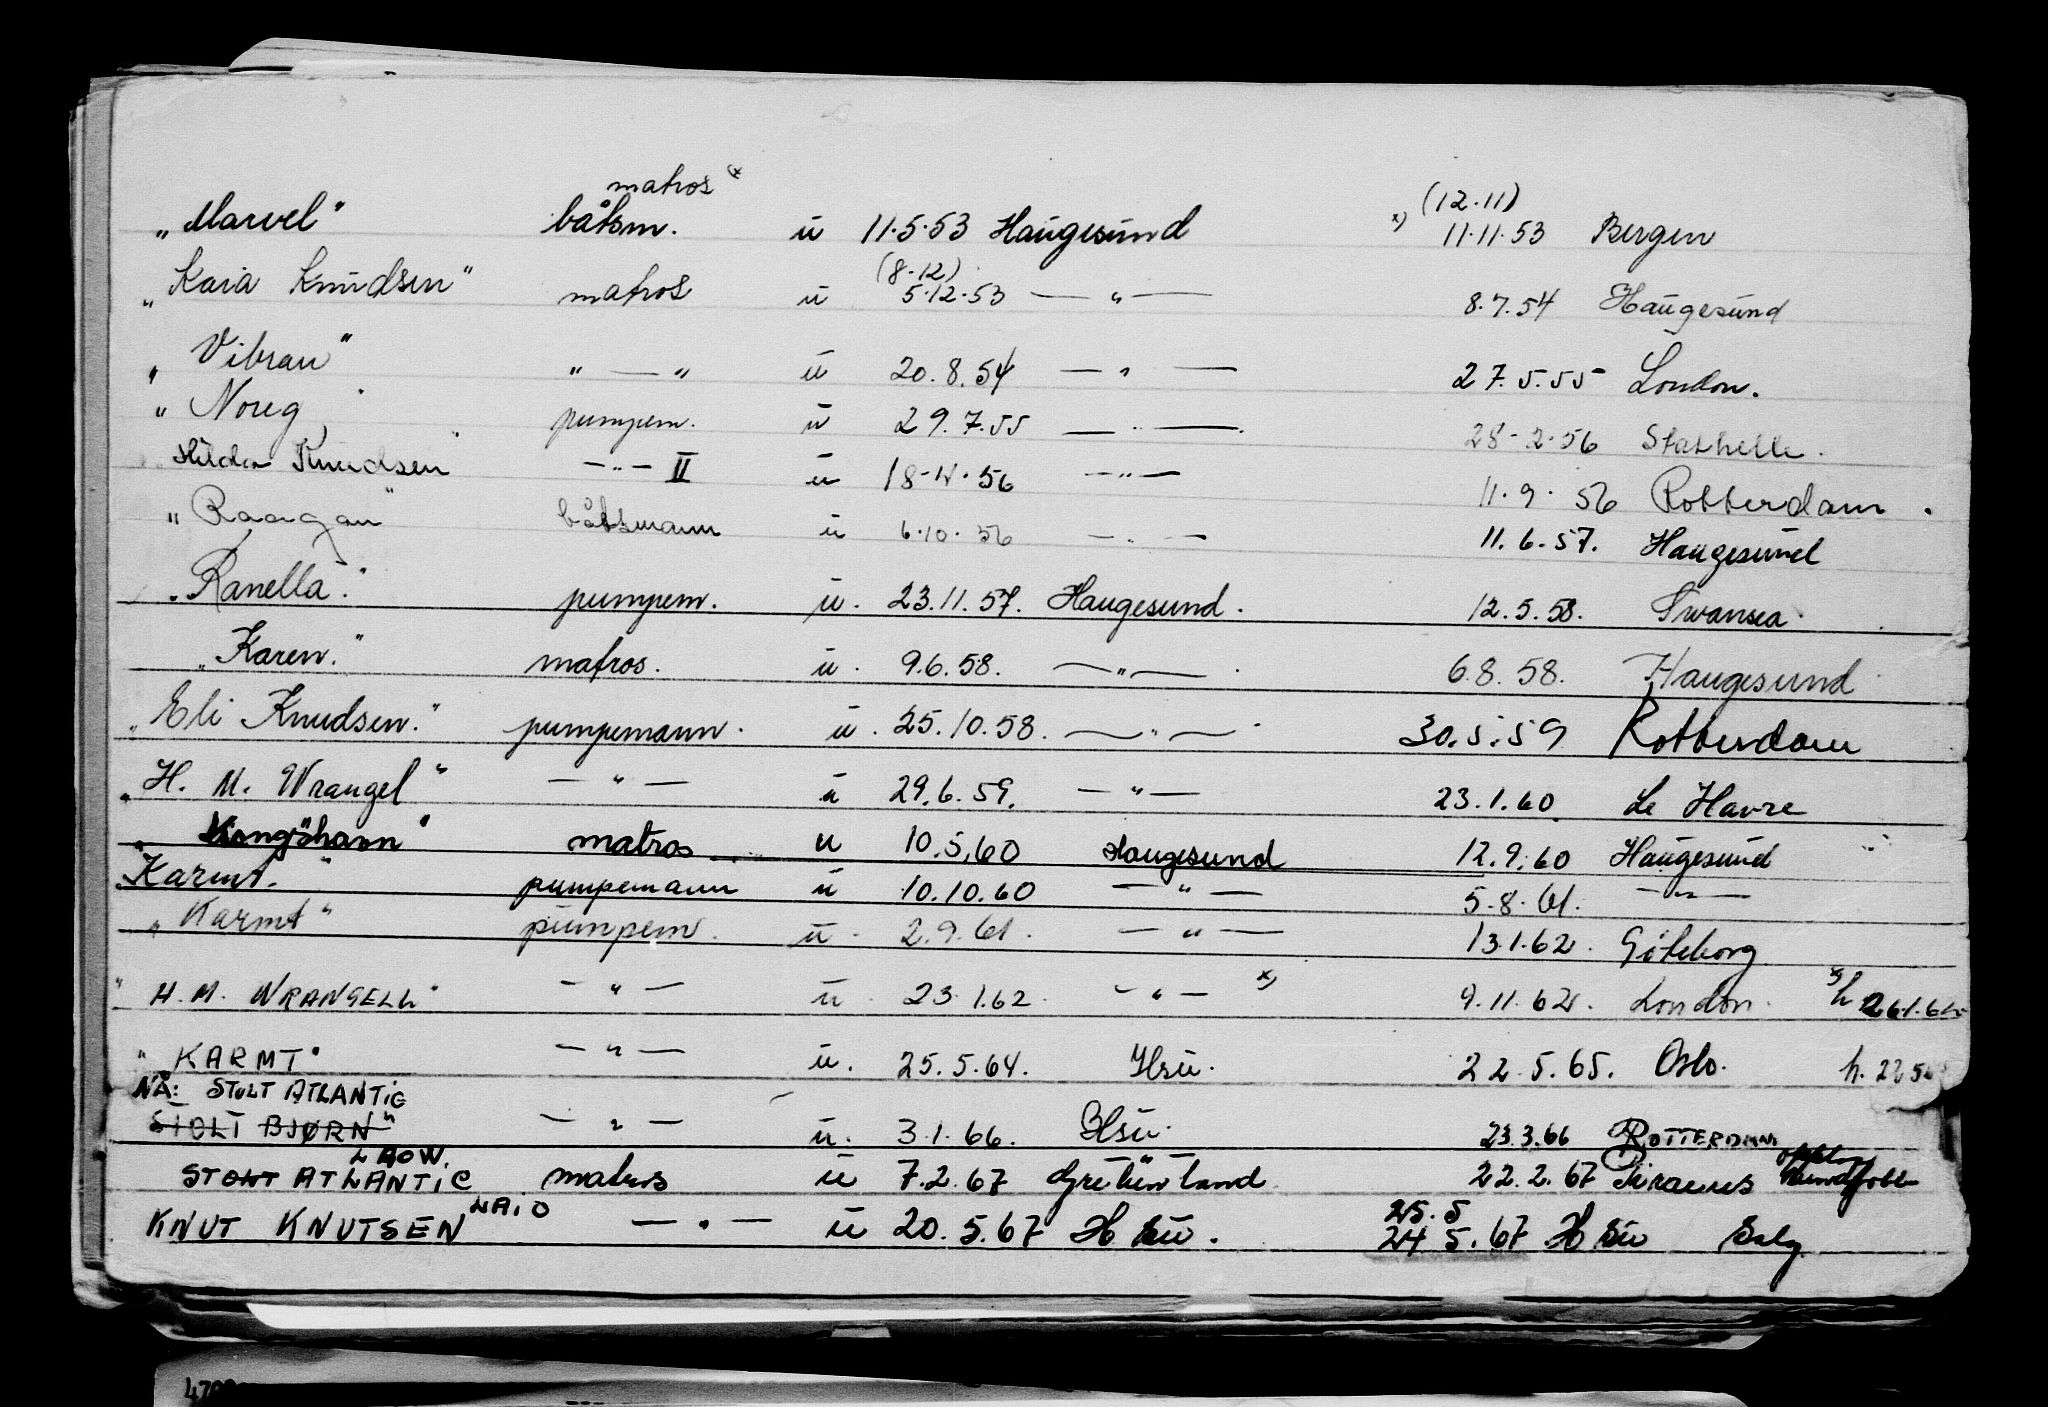 matros x)
"Marvel" båtsm. u 11.5.53 Haugesund x) (12.11) 11.11.53 Bergen
"Kaia Knudsen" matros u (8-12) 5.12.53 — " — 8.7.54 Haugesund
"Vibran" " — " u 20.8.54 — " — 27.5.55 London.
"Noreg" pumpem. u 29.7.55 — " — 28-2-56 Stathelle.
Hilda Knudsen" — " — II u 18-4-56 — " — 11.9.56 Rotterdam.
"Raagan" båtsmann u 6.10.56 — " — 11.6.57. Haugesund
"Ranella". pumpem. u. 23.11.57. Haugesund. 12.5.58. Swansea.
"Karen." matros. u. 9.6.58. — " — . 6.8.58. Haugesund
"Eli Knudsen." pumpemann. u. 25.10.58. — " — 30.5.59 Rotterdam
"H. M. Wrangel" — " — u 29.6.59. — " — 23.1.60. Le Havre
"Kongshavn" matros u 10.5.60 Haugesund 12.9.60 Haugesund
"Karmt." pumpemann u 10.10.60 — " — 5.8.61. — " —
"Karmt" pumpem. u. 2.9.61. — " — 13.1.62. Göteborg
"H.M. WRANGELL" — " — u. 23.1.62. — " — x) 9.11.62. London. x) h 26.1.62
"KARMT" — " — u. 25.5.64. Hsu. 22.5.65. Oslo. h. 22.5
NÅ: STOLT ATLANTIC
STOLT BJØRN" — " — u. 3.1.66. Hsu. 23.3.66 ROTTERDAM
STOLT ATLANTIC LAOW. matros u 7.2.67 22.2.67 Piraeus
KNUT KNUTSEN LAIO — " — u 20.5.67 Hsu. 25.5 24.5.67 Hsu Salg